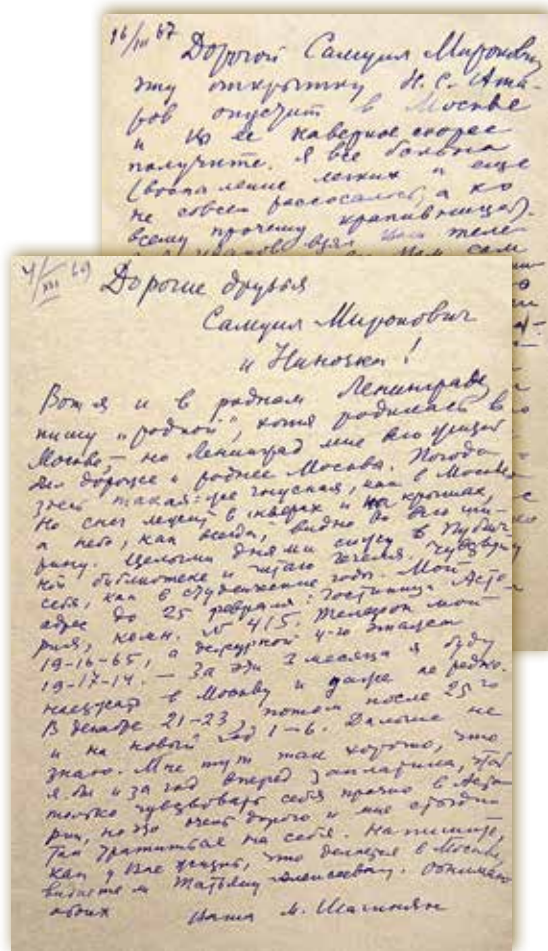 16/III 67
Дорогой Самуил Миронович
эту открытку Н.С. Ата-
ров опустит в Москве
и Вы ее наверное скорее
получите. Я все больна
(воспаление легких еще
не совсем рассосалось, а ко
всему прочему крапивница).
взял Ваш теле-
сам
4/XII 69
Дорогие друзья
Самуил Миронович
и Ниночка!
Вот я и в родном Ленинграде,
пишу „родной", хотя родилась в
Москве, – но Ленинград мне
дороже и роднее Москвы. Погода
здесь такая же гнусная, как в Москве
Но снег лежит в скверах и на крышах,
а небо, как всегда, видно во всю ши-
рину. Целыми днями сижу в Публич-
ной библиотеке и читаю Чувствую
себя, как в студенческие годы. Мой
адрес до 25 февраля: гостиница Асто-
рия, комн. № 415. Телефон мой
19-16-65, а дежурной 4-го этажа
19-17-14. – За эти 3 месяца я буду
наезжать в Москву и даже не редко.
В декабре 21-23, потом после 25го
и на новый год 1-6. Дальше не
знаю. Мне тут так хорошо, что
я бы и за год вперед заплатила, чтоб
только чувствовать себя прочно в Асто-
рии, но это очень дорого и мне стыдно
так тратиться на себя. Напишите,
как у Вас жизнь, что делается в Москве,
видаете ли Татьяну Алексеевну. Обнимаю
обоих Ваша М. Шагинян